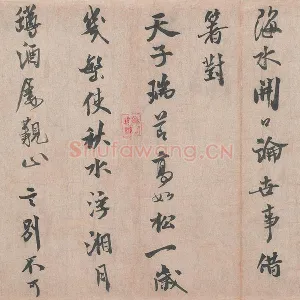 海水開口論世事借
箸對
天子瑞芝高如松一歲
幾繁使秋水浮湘月
樽酒屬山之別不可
Shufawang.CN